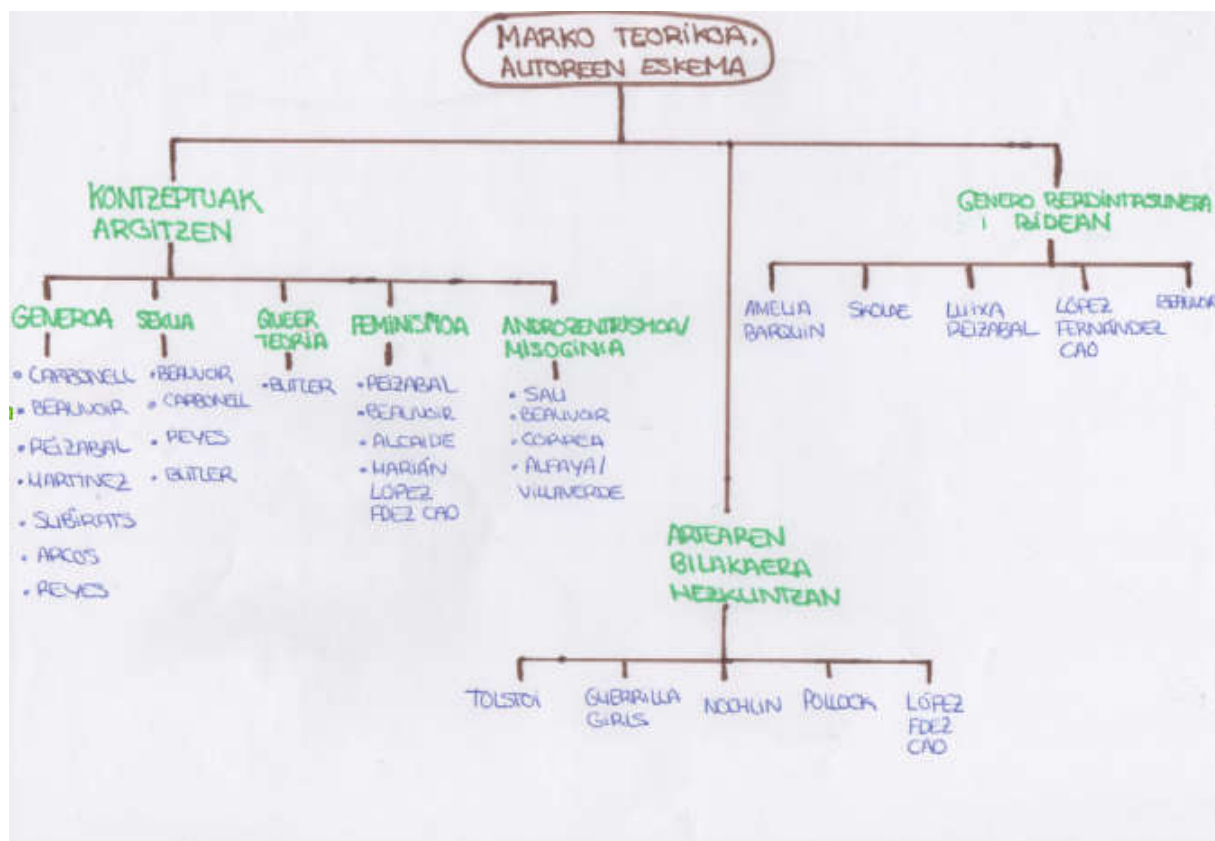 MARKO TEORIKOA.
AUTOREEN ESKEMA
KONTZEPTUAK
ARGITZEN
GENEROA
• CARBONELL
• BEAUVOIR
• REIZABAL
• MARTINEZ
• SUBIRATS
• ARCOS
• REYES
SEXUA
• BEAUVOIR
• CARBONELL
• REYES
• BUTLER
QUEER
TEORIA
• BUTLER
FEMINISMOA
• REIZABAL
• BEAUVOIR
• ALCAIDE
• MARIÁN
LÓPEZ
FDEZ CAO
ANDROZENTRISMOA/
MISOGINIA
• SAU
• BEAUVOIR
• CORREA
• ALFAYA/
VILLAVERDE
ARTEAREN
BILAKAERA
HEZKUNTZAN
TOLSTOI
GUERRILLA
GIRLS
NOCHLIN
POLLOCK
LÓPEZ
FDEZ
CAO
GENERO BERDINTASUNERA
BIDEAN
AMELIA
BARQUIN
SKOLAE
LUIXA
REIZABAL
LÓPEZ
FERNÁNDEZ
CAO
BEAUVOIR